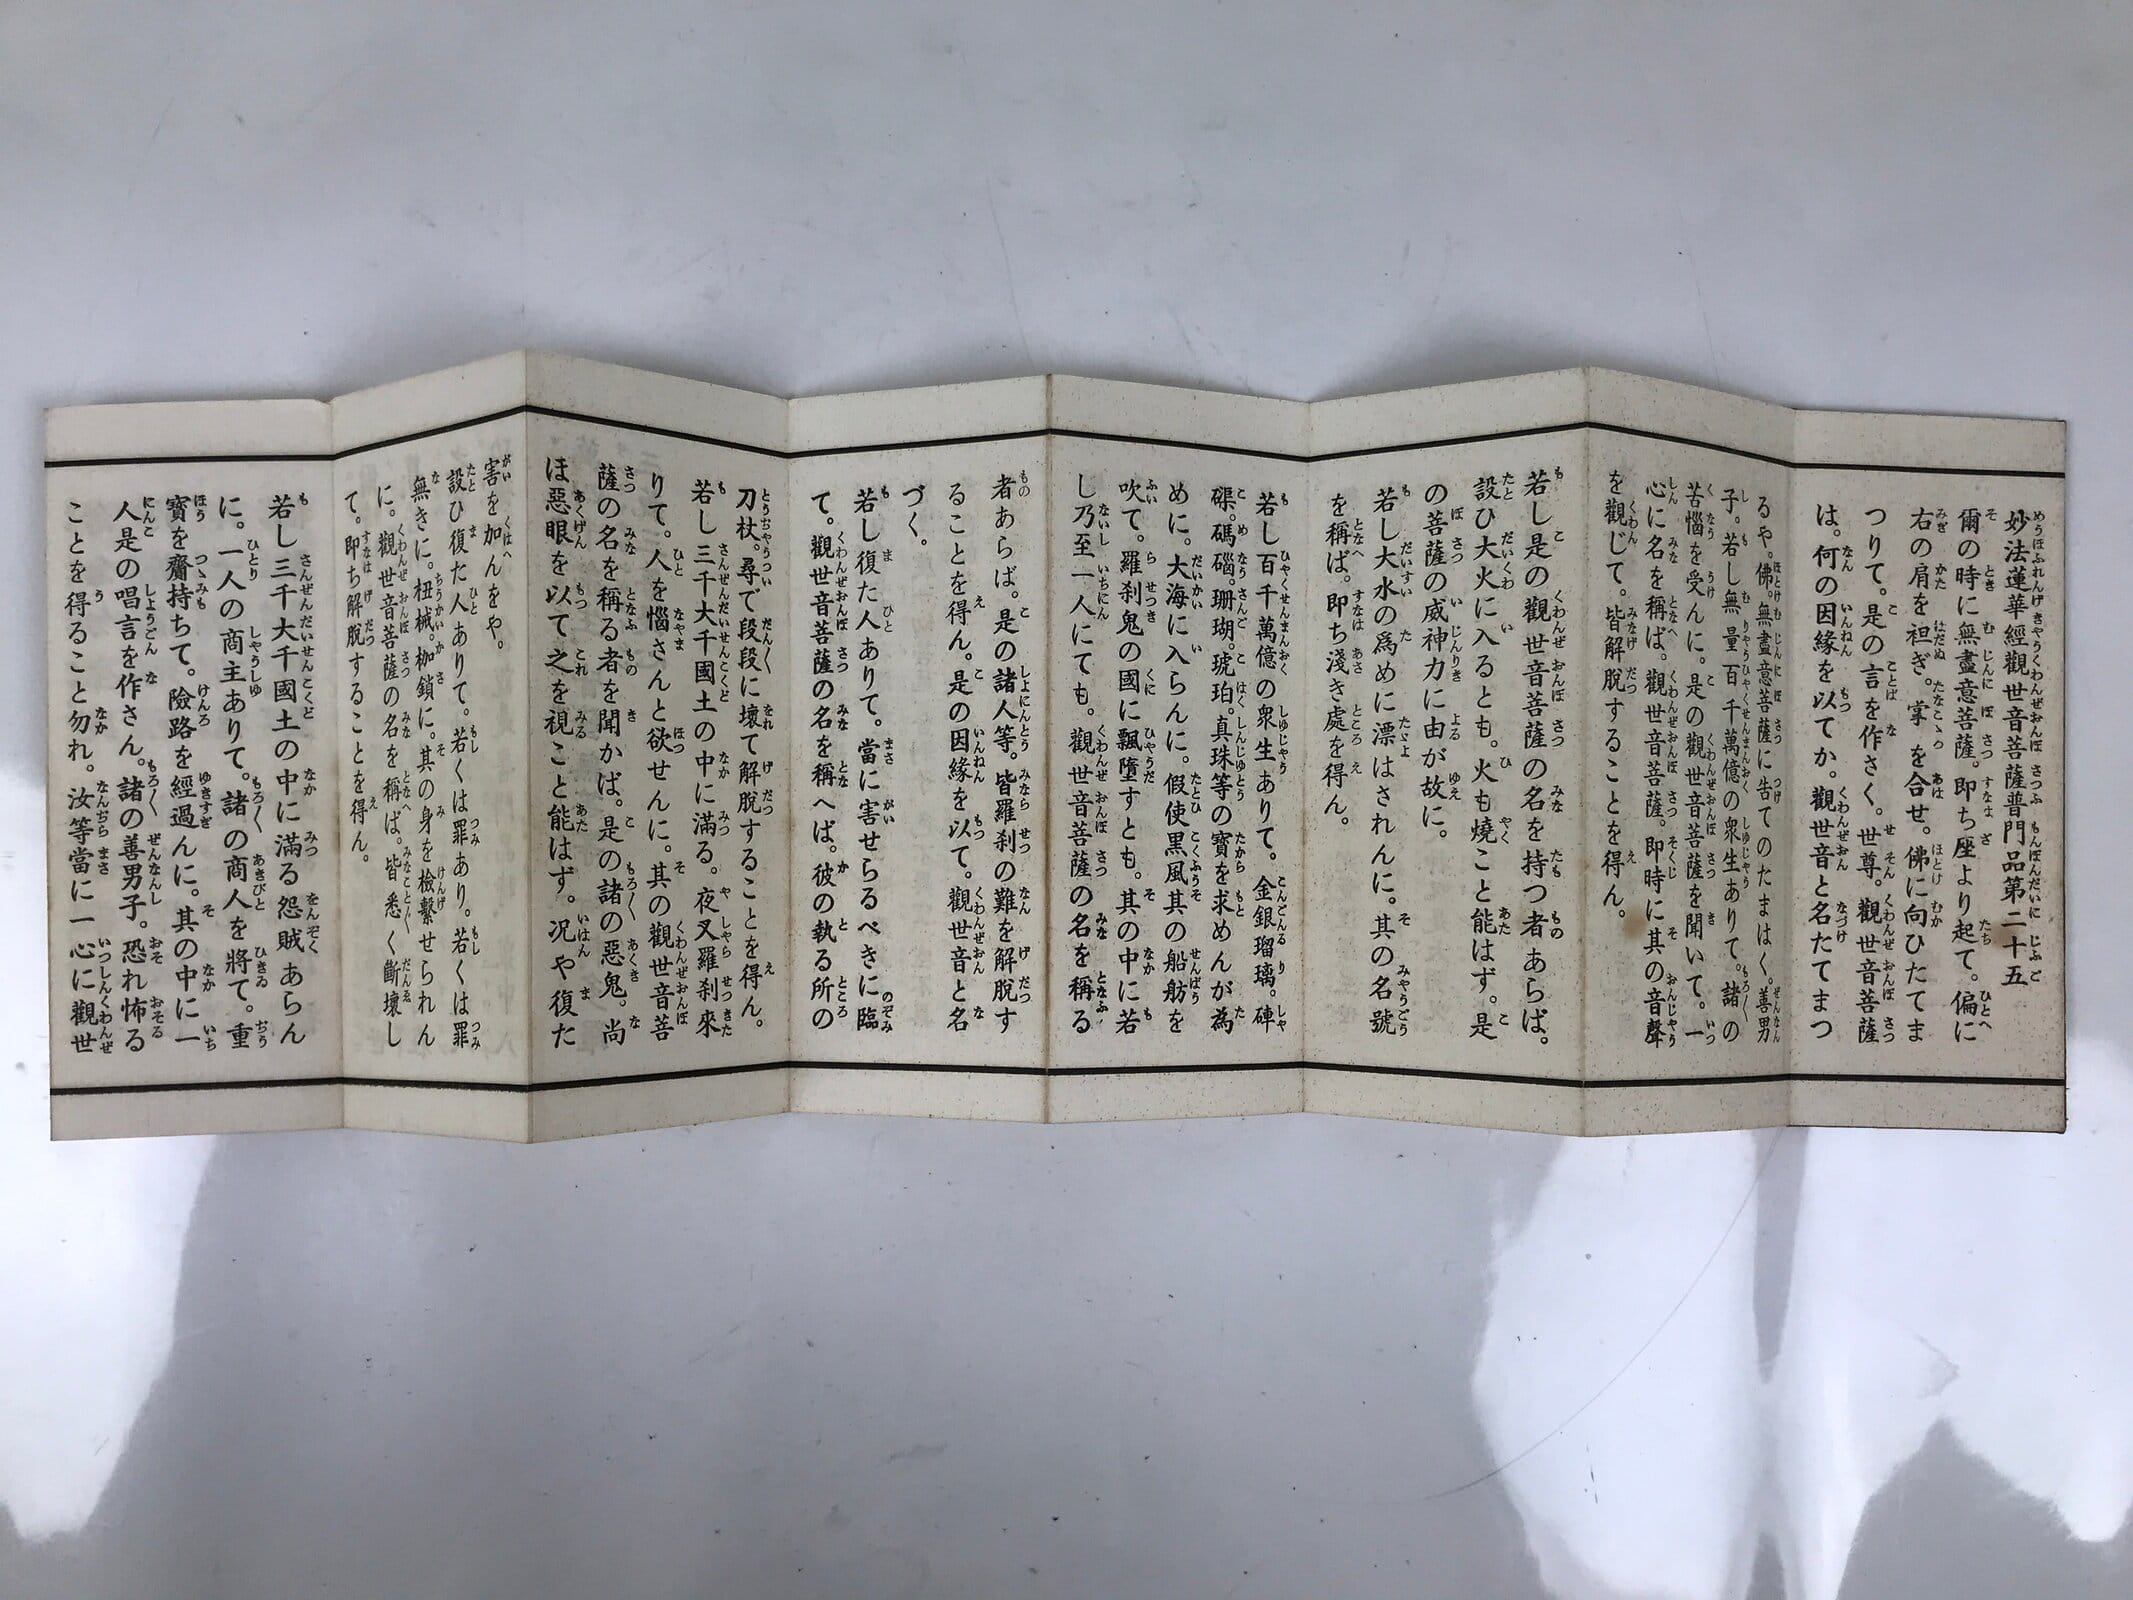 妙法蓮華經觀世音菩薩普門品第二十五
爾の時に無盡意菩薩。即ち座より起て。偏に
右の肩を袒ぎ。掌を合せ。佛に向ひたてま
つりて。是の言を作さく。世尊。觀世音菩薩
は。何の因緣を以てか。觀世音と名たてまつ
るや。佛。無盡意菩薩に告てのたまはく。善男
子。若し無量百千萬億の衆生ありて。諸の
苦惱を受んに。是の觀世音菩薩を聞いて。一
心に名を稱ば。觀世音菩薩。即時に其の音聲
を觀じて。皆解脫することを得ん。
若し是の觀世音菩薩の名を持つ者あらば。
設ひ大火に入るとも。火も燒こと能はず。是
の菩薩の威神力に由が故に。
若し大水の爲めに漂はされんに。其の名號
を稱ば。即ち淺き處を得ん。
若し百千萬億の衆生ありて。金銀瑠璃。硨
磲。碼碯。珊瑚。琥珀。真珠等の寶を求めんが為
めに。大海に入らんに。假使黒風其の船舫を
吹て。羅刹鬼の國に飄墮すとも。其の中に若
し乃至一人にても。觀世音菩薩の名を稱る
者あらば。是の諸人等。皆羅刹の難を解脫す
ることを得ん。是の因緣を以て。觀世音と名
づく。
若し復た人ありて。當に害せらるべきに臨
て。觀世音菩薩の名を稱へば。彼の執る所の
刀杖。尋で段段に壞て解脫することを得ん。
若し三千大千國土の中に滿る。夜叉羅刹來
りて。人を惱さんと欲せんに。其の觀世音菩
薩の名を稱る者を聞かば。是の諸の惡鬼。尚
ほ惡眼を以て之を視こと能はず。況や復た
害を加んをや。
設ひ復た人ありて。若くは罪あり。若くは罪
無きに。杻械。枷鎖に。其の身を檢繫せられん
に。觀世音菩薩の名を稱ば。皆悉く斷壞し
て。即ち解脫することを得ん。
若し三千大千國土の中に滿る怨賊あらん
に。一人の商主ありて。諸の商人を將て。重
寶を齎持ちて。險路を經過んに。其の中に一
人是の唱言を作さん。諸の善男子。恐れ怖る
ことを得ること勿れ。汝等當に一心に觀世